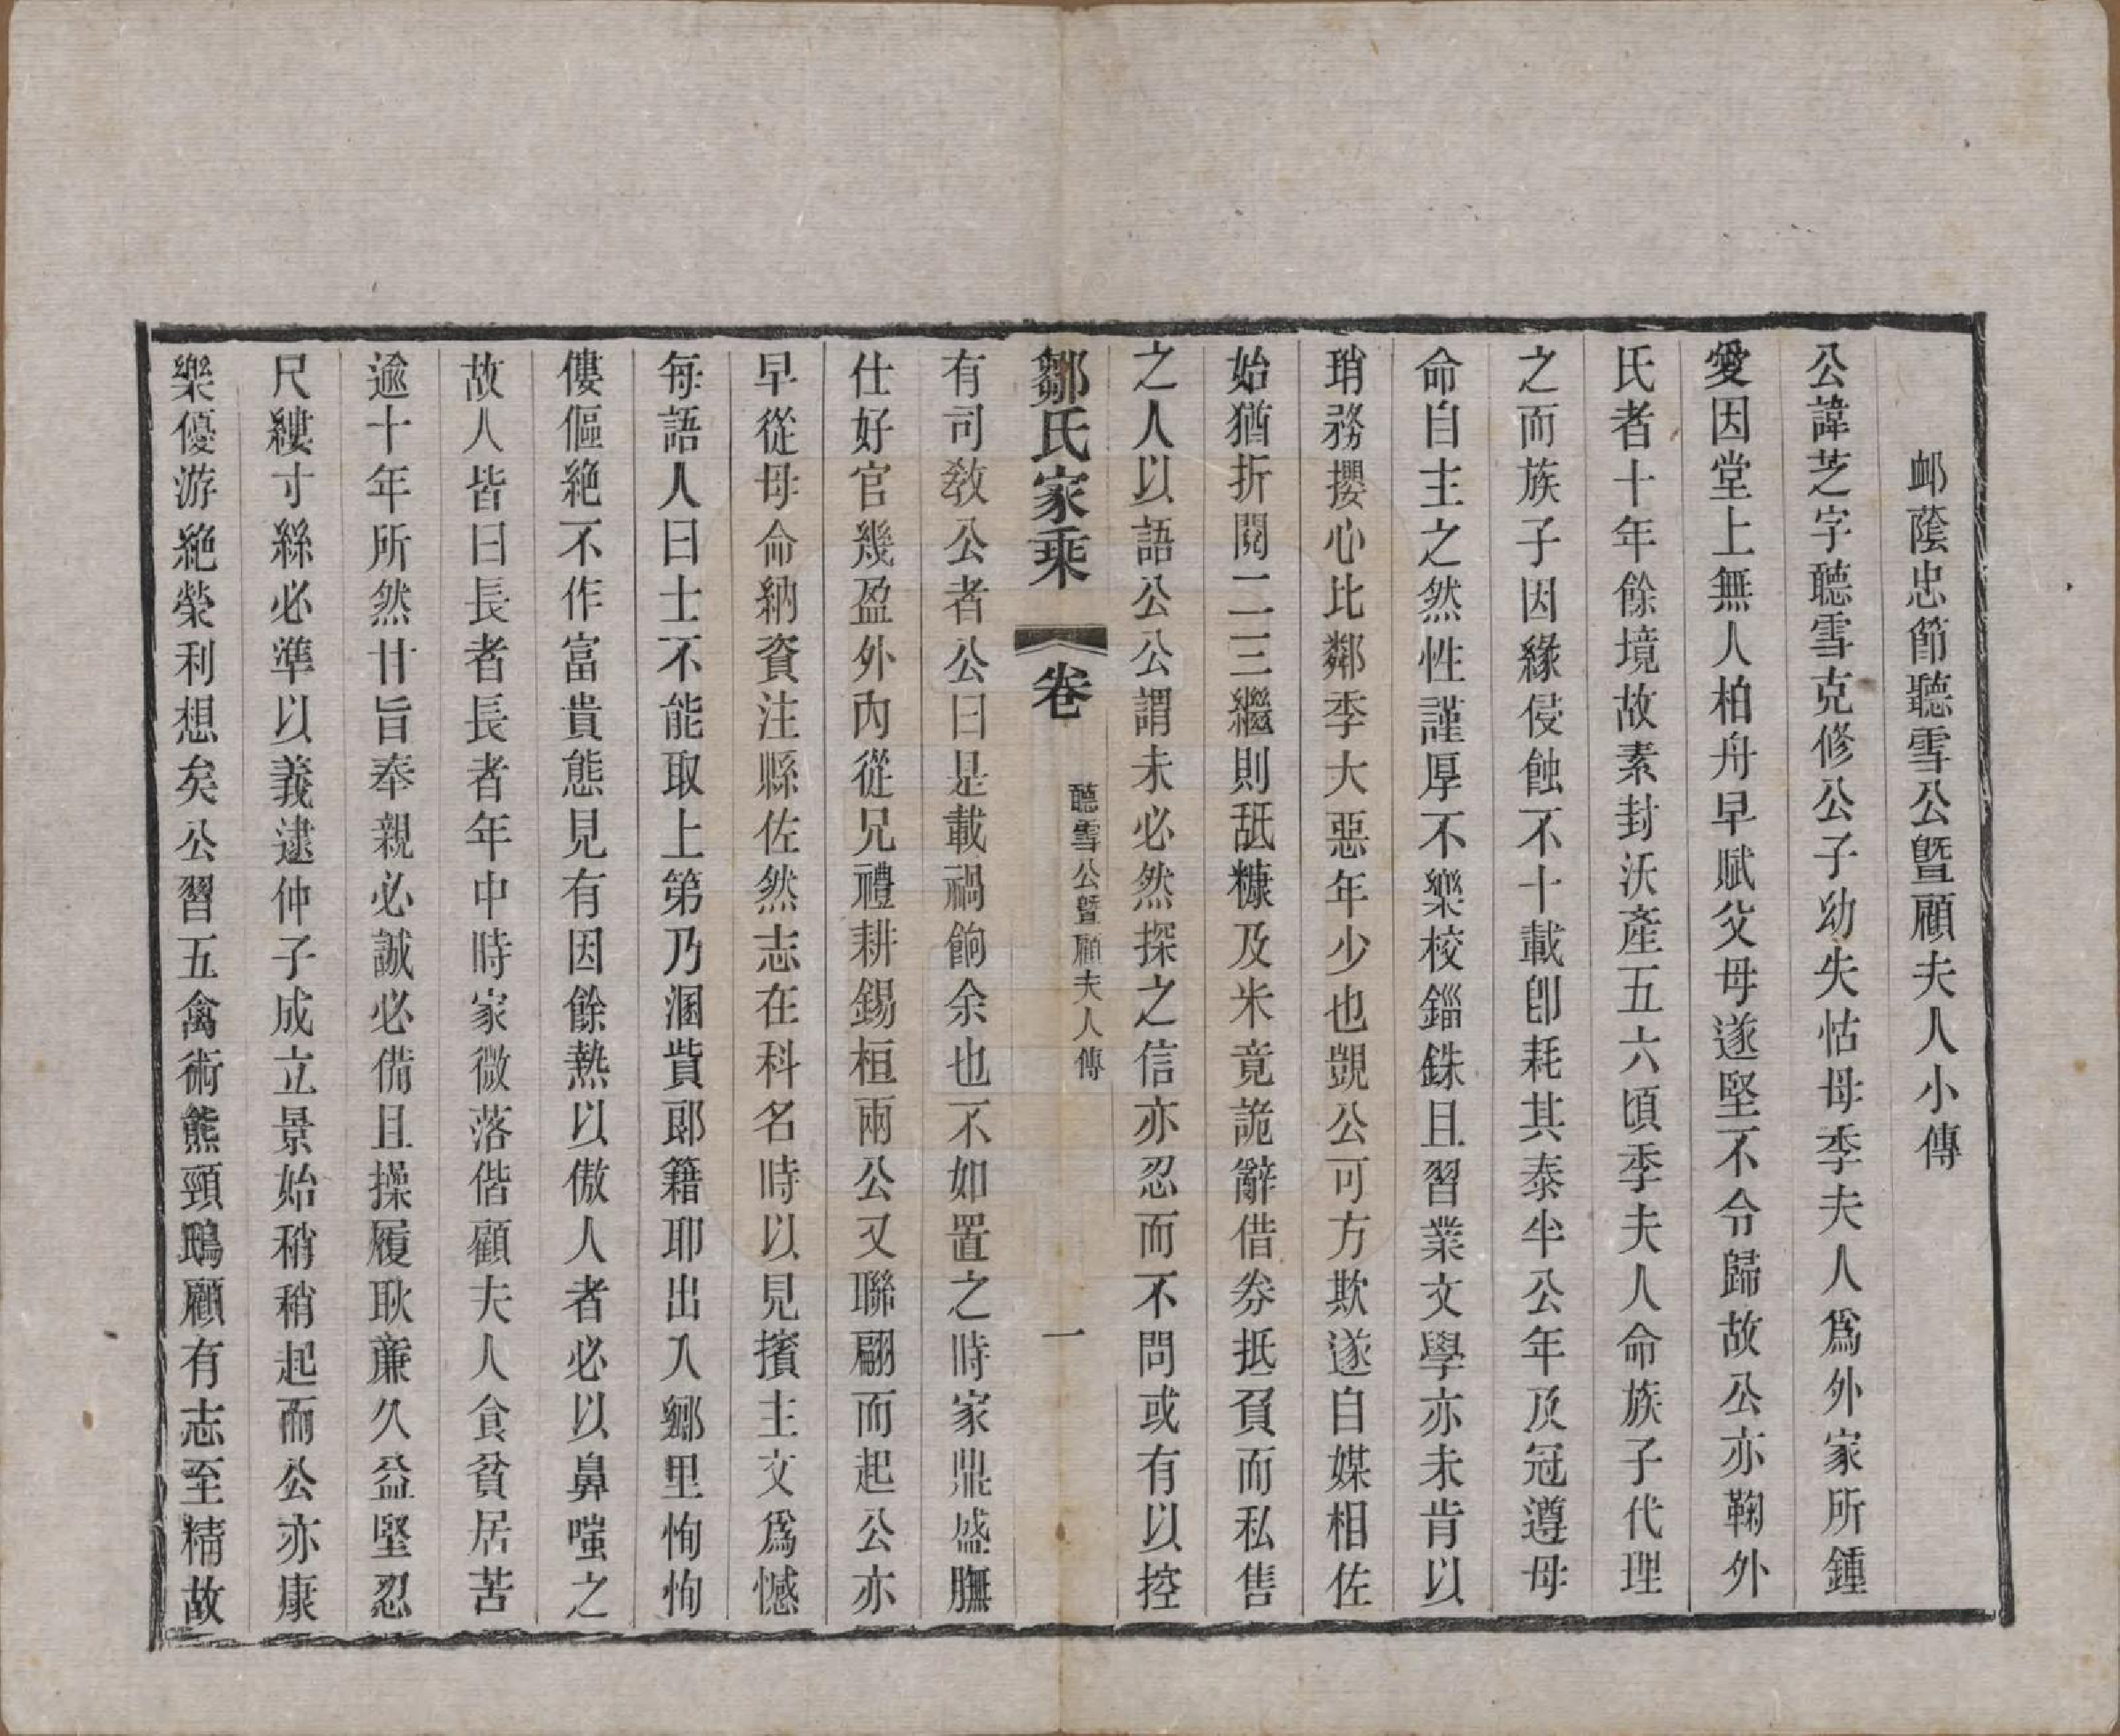 卹蔭忠節聽雪公曁顧夫人小傳
公諱芝字聽雪克修公子幼失怙母季夫人爲外家所鍾
愛因堂上無人柏舟早賦父母遂堅不令歸故公亦鞠外
氏者十年餘境故素封沃產五六頃季夫人命族子代理
之而族子因緣侵蝕不十載卽耗其泰半公年及冠遵母
命自主之然性謹厚不樂校錙銖且習業文學亦未肯以
瑣務攖心比鄰季大惡年少也覬公可方欺遂自媒相佐
始猶折閱二三繼則舐糠及米竟詭辭借劵抵負而私售
之人以語公公謂未必然探之信亦忍而不問或有以控
鄒氏家乘 卷 聽雪公曁顧夫人傳 一
有司敎公者公曰是載禍餉余也不如置之時家鼎盛膴
仕好官幾盈外內從兄禮耕錫桓兩公又聯翩而起公亦
早從母命納資注縣佐然志在科名時以見擯主文爲憾
每語人曰士不能取上第乃溷貲郞籍耶出入鄉里恂恂
僂傴絶不作富貴態見有因餘熱以傲人者必以鼻嗤之
故人皆曰長者長者年中時家微落偕顧夫人食貧居苦
逾十年所然甘旨奉親必誠必備且操履耿亷久益堅忍
尺縷寸絲必準以義逮仲子成立景始稍稍起而公亦康
樂優游絶榮利想矣公習五禽術熊頸鴟顧有志至精故